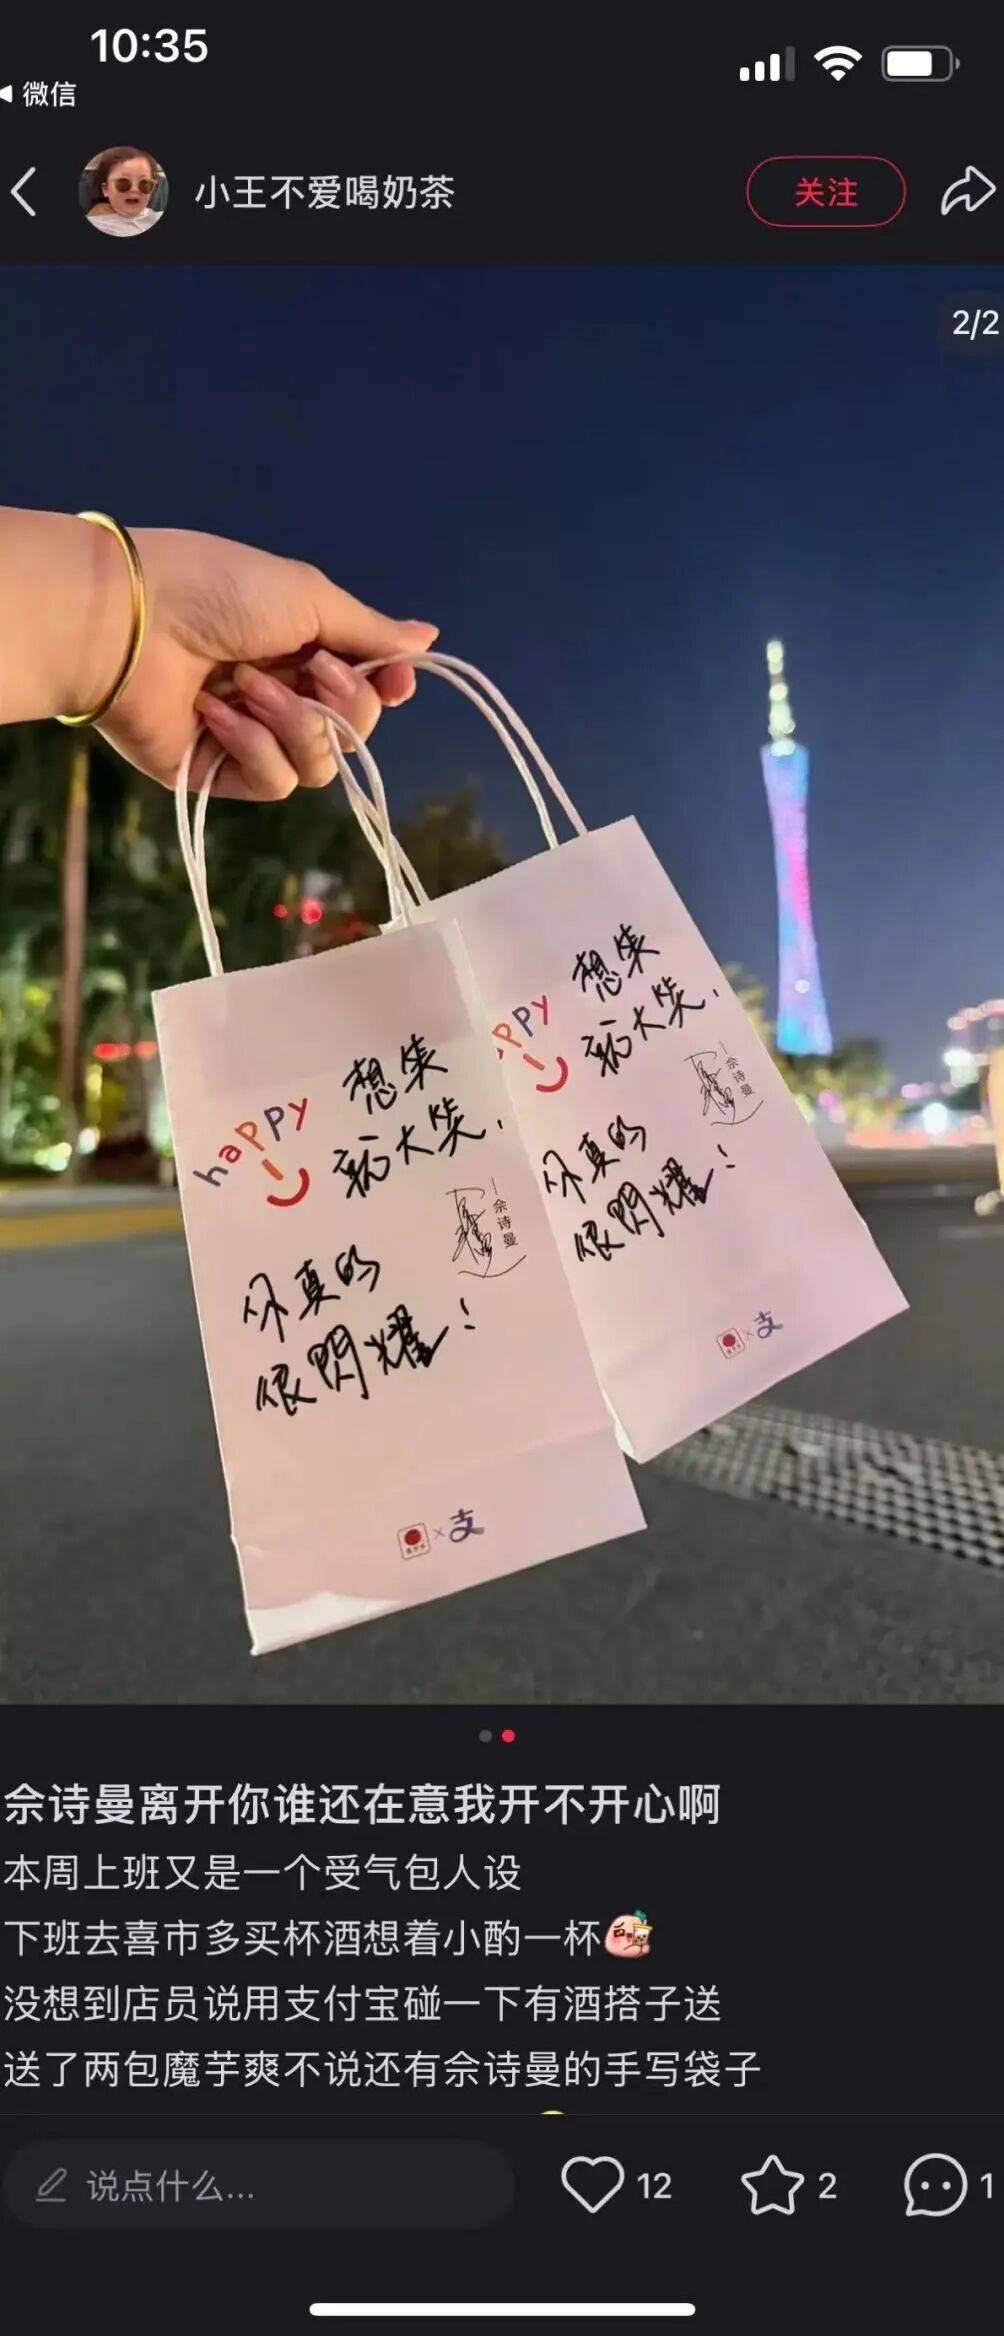 10:35
微信
小王不爱喝奶茶
关注
2/2
happy
想笑
就大笑,
—佘诗曼
你真的
很閃耀!
×支
ppy
想笑
就大笑,
—佘诗曼
你真的
很閃耀!
×支
佘诗曼离开你谁还在意我开不开心啊
本周上班又是一个受气包人设
下班去喜市多买杯酒想着小酌一杯
没想到店员说用支付宝碰一下有酒搭子送
送了两包魔芋爽不说还有佘诗曼的手写袋子
说点什么...
12
2
1